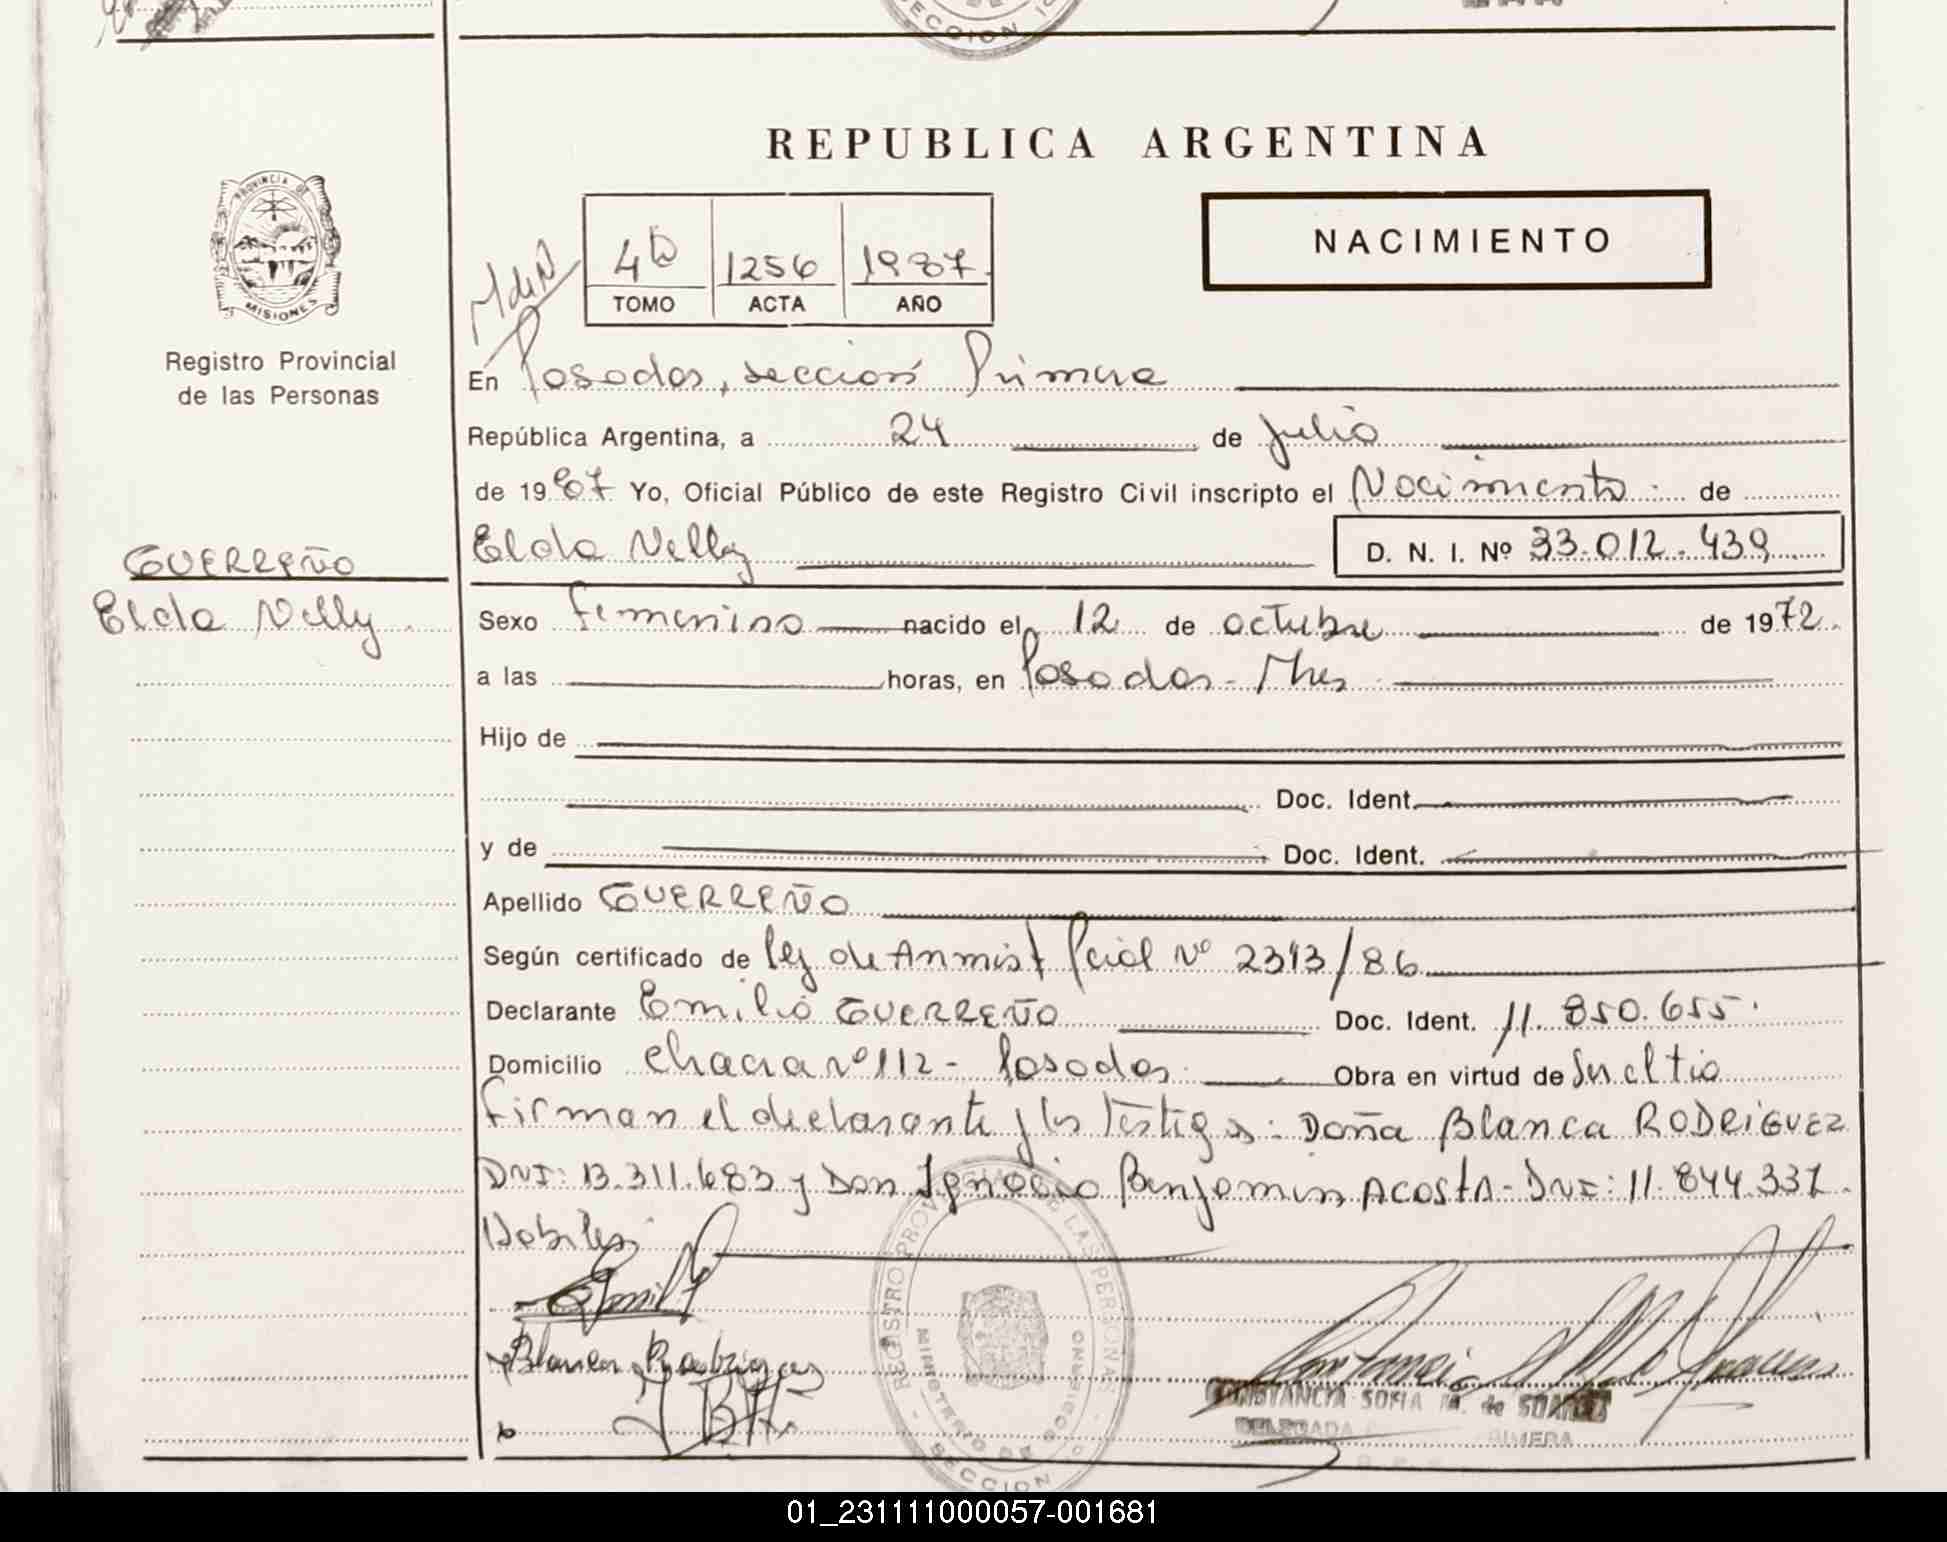 SECCION 1
REPUBLICA ARGENTINA
PROVINCIA DE
MISIONES
Registro Provincial
de las Personas
NACIMIENTO
4D 1256 1987
TOMO ACTA AÑO
En Posadas, sección Primera
República Argentina, a 24 de Julio
de 1987 Yo, Oficial Público de este Registro Civil inscripto el Nacimiento de
Elda Nelly D. N. I. Nº 33.012.439
GUERREÑO
Elda Nelly
Sexo femenino nacido el 12 de octubre de 1972
a las horas, en Posadas - Mnes
Hijo de
Doc. Ident.
y de Doc. Ident.
Apellido GUERREÑO
Según certificado de ley de Amnist Pcial Nº 2393/86
Declarante Emilio GUERREÑO Doc. Ident. 11.850.655.
Domicilio chacra nº 112 - Posadas Obra en virtud de Su cltio
firman el declarante y los testigos: Doña Blanca RODRIGUEZ
DNI: 13.311.683 y Don Ignacio Benjamin ACOSTA - DNI: 11.844.337.
Habiles
Blanca Rodriguez
REGISTRO PROVINCIAL DE LAS PERSONAS
MINISTERIO DE GOBIERNO
SECCION
CONSTANCIA SOFIA M. de SUAREZ
DELEGADA PRIMERA
01_231111000057-001681